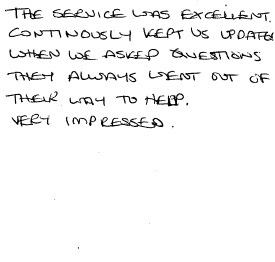 THE SERVICE WAS EXCELLENT.
CONTINOUSLY KEPT US UPDATED
WHEN WE ASKED QUESTIONS
THEY ALWAYS WENT OUT OF
THEIR WAY TO HELP.
VERY IMPRESSED.